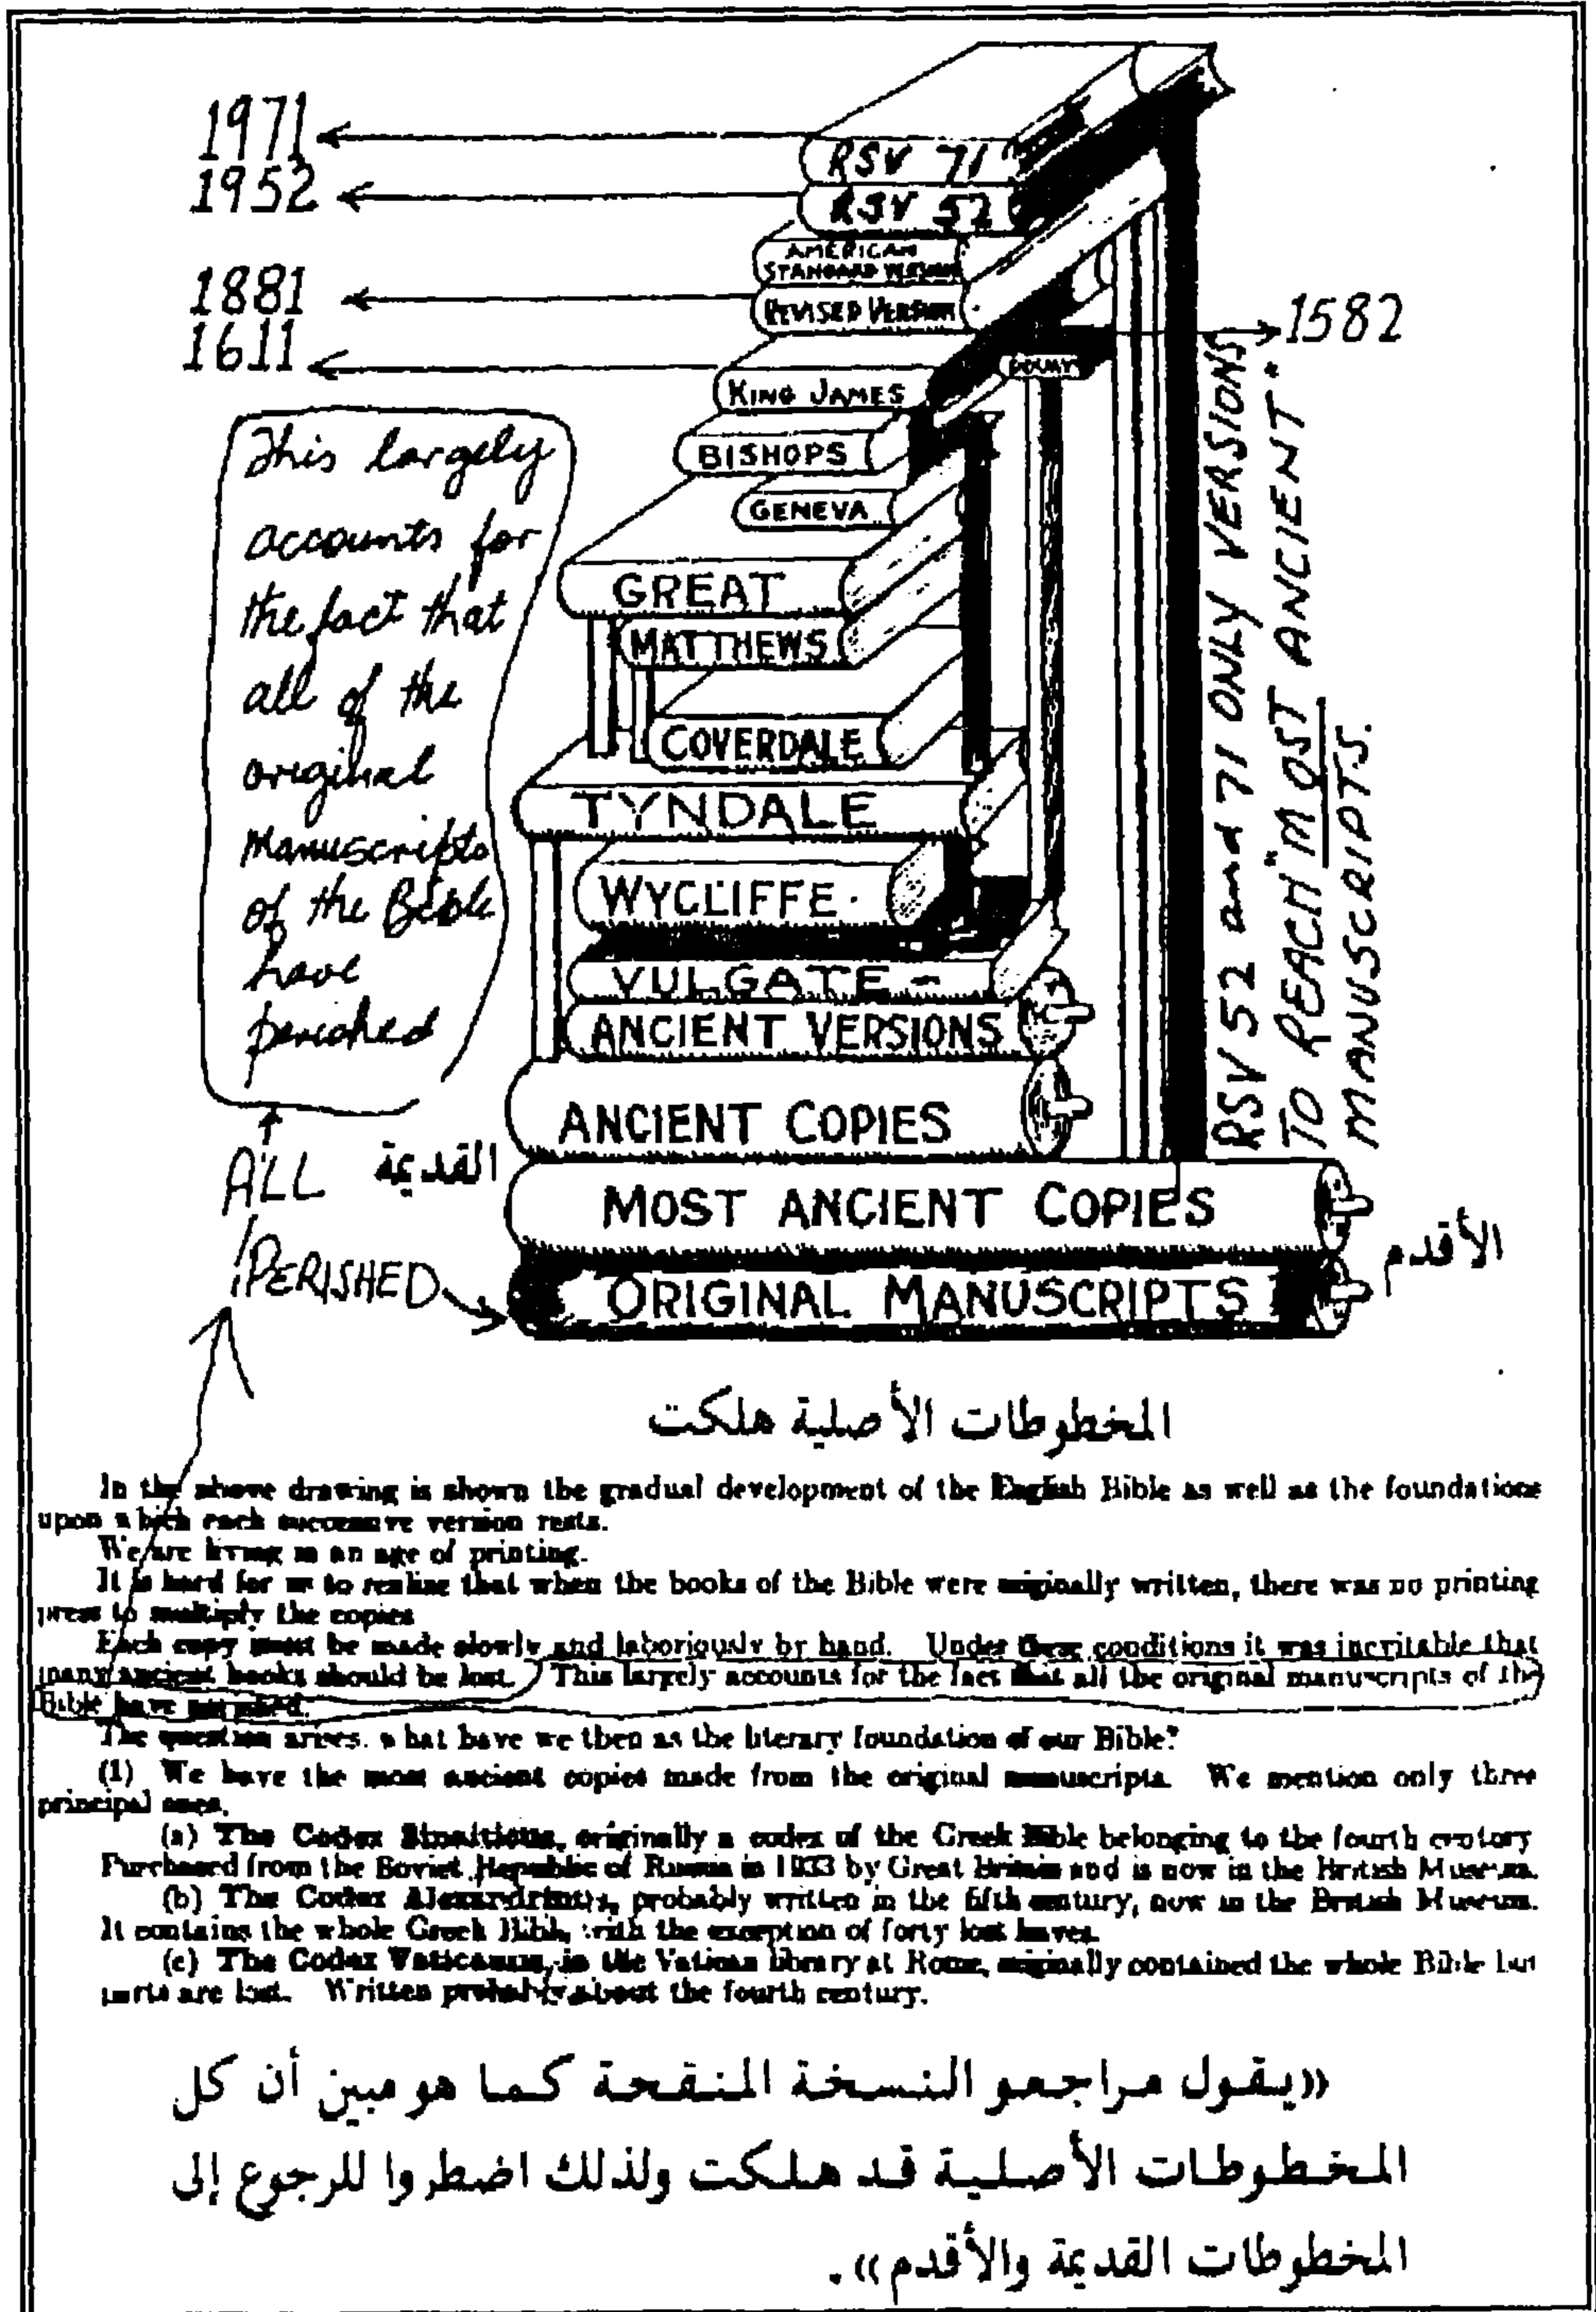 1971
1952
1881
1611
RSV 71
RSV 52
AMERICAN
STANDARD VERSION
REVISED VERSION
1582
DOUAY
KING JAMES
BISHOPS
GENEVA
GREAT
MATTHEWS
COVERDALE
TYNDALE
WYCLIFFE
VULGATE
ANCIENT VERSIONS
ANCIENT COPIES
MOST ANCIENT COPIES
ORIGINAL MANUSCRIPTS
This largely
accounts for
the fact that
all of the
original
Manuscripts
of the Bible
have
perished
ALL
PERISHED
القديمة
الأقدم
RSV 52 and 71 ONLY VERSIONS
TO REACH "MOST ANCIENT"
MANUSCRIPTS.
المخطوطات الأصلية هلكت
In the above drawing is shown the gradual development of the English Bible as well as the foundations
upon which each successive version rests.
We are living in an age of printing.
It is hard for us to realize that when the books of the Bible were originally written, there was no printing
press to multiply the copies
Each copy must be made slowly and laboriously by hand. Under these conditions it was inevitable that
many ancient books should be lost. This largely accounts for the fact that all the original manuscripts of the
Bible have perished.
The question arises. what have we then as the literary foundation of our Bible?
(1) We have the most ancient copies made from the original manuscripts. We mention only three
principal ones.
(a) The Codex Sinaiticus, originally a codex of the Greek Bible belonging to the fourth century
Purchased from the Soviet Republic of Russia in 1933 by Great Britain and is now in the British Museum.
(b) The Codex Alexandrinus, probably written in the fifth century, now in the British Museum.
It contains the whole Greek Bible, with the exception of forty lost leaves.
(c) The Codex Vaticanus, in the Vatican library at Rome, originally contained the whole Bible but
parts are lost. Written probably about the fourth century.
«يقول مراجعو النسخة المنقحة كما هو مبين أن كل
المخطوطات الأصلية قد هلكت ولذلك اضطروا للرجوع إلى
المخطوطات القديمة والأقدم».